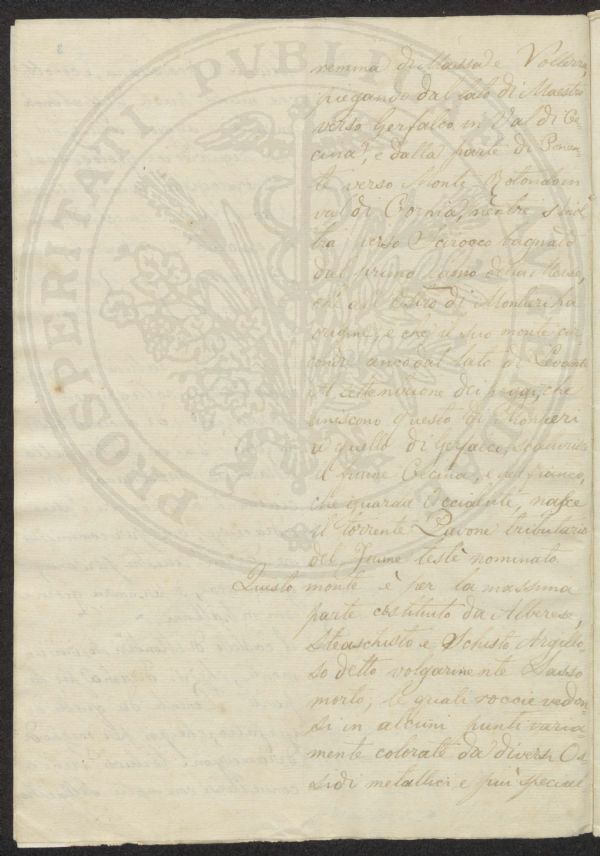 remma di Massa e Volterra
piegando dal lato di Maestro
verso Gerfalco in Val di Ce-
cina, e dalla parte di Ponen-
te verso Monte Rotondo in
val di Cornia, mentre
tra verso Scirocco bagnato
dal primo ramo della Merse,
che a di Montieri ha
origine, e che il suo monte cir
conda anco dal lato di Levante
dei poggi, che
uniscono questo di Montieri
a quello di Gerfalco,
il fiume Cecina, e pel fianco,
che guarda Occidente, nasce
il torrente Pavone tributario
del fiume testè nominato.
Questo monte è per la massima
parte costituito da Alberese,
Steaschisto e Schisto Argillo
so detto volgarmente Sasso
morto, le quali roccie vedon
si in alcuni punti varia
mente colorate da diversi Os
sidi metallici e più special
PROSPERITATI PVBLICAE
3